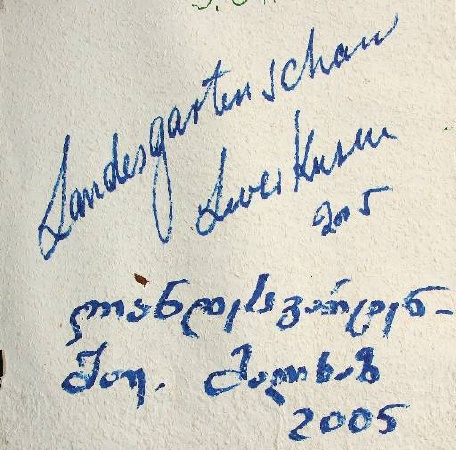 Landesgartenschau
Leverkusen
2005
ლანდესგარტენ-
შაუ.
2005